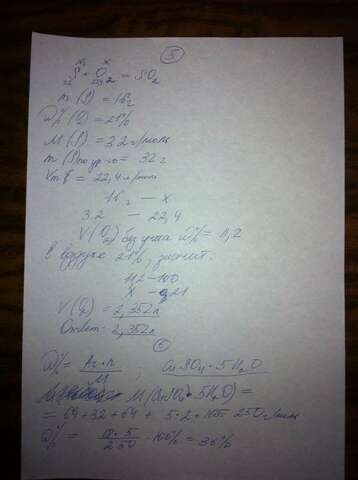 5
16г x
S + O2 = SO2
32 22,4
m (S) = 16г
W% (O) = 21%
M (S) = 32 г/моль
m (S) по ур-ю = 32 г
Vm = 22,4 л/моль
16г — x
32 — 22,4
V (O2) без учета W% = 11,2
В воздухе 21%, значит:
112 — 100
x — 0,21
V (O2) = 2,352л
Ответ: 2,352л
6
W% = Ar·n / M ; CuSO4 · 5H2O
M (CuSO4 · 5H2O) =
= 64 + 32 + 64 + 5·2 + 16·5 = 250 г/моль
W% = 18·5 / 250 · 100% = 36%